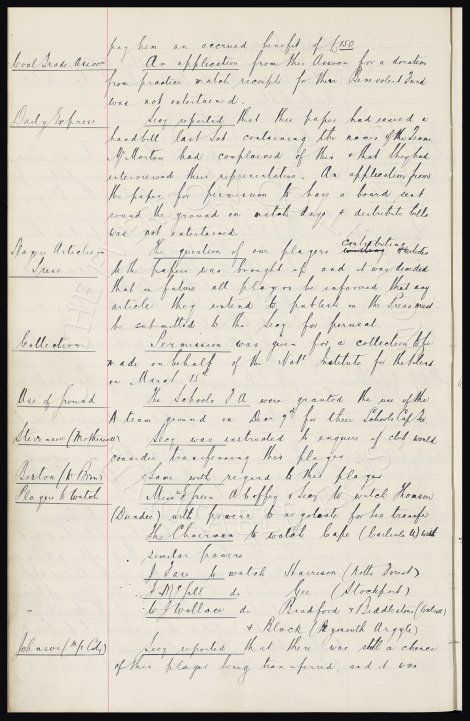 pay him an accrued benefit of £150
Coal Trade Assoon An application from this Assocn for a donation
from practice match receipts for their Benevolent Fund
was not entertained
Daily Express Secy reported that this paper had issued a
handbill last Sat containing the names of the Team
Mr Morton had complained of this & that they had
interviewed their representative. An application from
the paper for permission to have a board sent
round the ground on match days & distribute bills
was not entertained.
Players Articles in The question of our players contributing articles
Press to the papers was brought up and it was decided
that in future all players be informed that any
article they intend to publish in the Press must
be submitted to the Secy for perusal.
Collection Permission was given for a collection to be
made on behalf of the Natl Institute for the Blind
on March 15
Use of Ground The Schools F A were granted the use of the
A team ground on Dec 9th for their Schools Cup Tie
Stevenson (Motherwell) Secy was instructed to enquire if club would
consider transferring this player
Boston (W Brom) Same with regard to this player
Players to Watch Messrs Green A Coffey & Secy to watch Thomson
(Dundee) with powers to negotiate for his transfer
The Chairman to watch Cape (Carlisle U) with
similar powers
J Fare to watch Harrison (Notts Forest)
McGill do Gee (Stockport)
W J Wallace do Bradford & Biddlestone (Walsall)
& Black (Plymouth Argyle)
Johnson (M/c City) Secy reported that there was still a chance
of this player being transferred, and it was